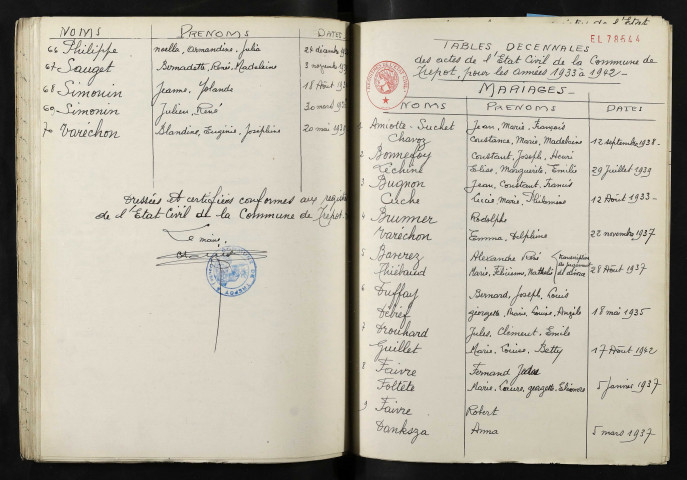 NOMS PRENOMS DATES
66 Philippe Noëlla, Armandine, Julie 24 décembre
67 Sauget Bernadette, René, Madeleine 3 novembre
68 Simonin Jeanne, Yolande 18 Août
69 Simonin Julien, René 30 mars
70 Varéchon Blandine, Eugénie, Joséphine 20 mai
Dressées et certifiées conformes aux
de l'Etat Civil de la Commune de Trepot.
Le maire,
de l'Etat
EL 78544
TABLES DECENNALES
des actes de l'Etat Civil de la Commune de
Trepot, pour les années 1933 à 1942-
MARIAGES-
NOMS PRENOMS DATES
1 Amiotte-Suchet Jean, Marie, François
Chavoz Constance, Marie, Madeleine 12 septembre 1938-
2 Bonnefoy Constant, Joseph, Henri
Téchine Elise, Marguerite, Emilie 29 Juillet 1939
3 Bugnon Jean, Constant, Francis
Cuche Lucie, Marie, Philomène 12 Août 1933-
4 Brunner Rodolphe
Varéchon Emma, Delphine 22 novembre 1937
5 Alexandre René transcription de jugement
Thiébaud Marie, Félicienne, Nathalie de divorce 28 Août 1937
6 Duffay Bernard, Joseph, Louis
Georgette, Marie, Louise, Angèle 18 mai 1935
7 Drouhard Jules, Clément, Emile
Guillet Marie, Louise, Betty 17 Août 1942
8 Faivre Fernand Jules
Foltête Marie, Laure, Georgette, Eléonore 5 Janvier 1937
9 Faivre Robert
Danksza Anna 5 mars 1937